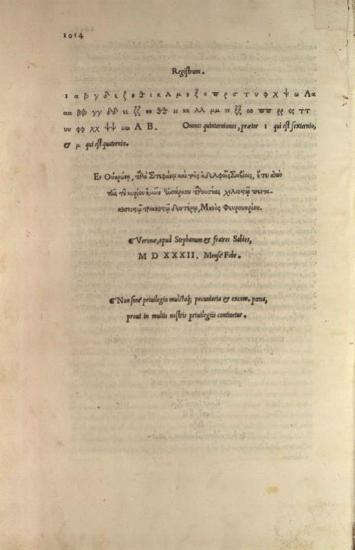 1014
Registrum.
1 α β γ δ ε ζ θ ι κ λ μ ξ ο π ρ σ τ υ φ χ ψ ω Λα
αα ββ γγ δδ εε ζζ θθ ιι κκ λλ μμ ξξ οο ππ ρρ ττ
υυ φφ χχ ψψ ωω A B. Omnes quinterniones, præter 1 qui est sexternio,
& μ qui est quaternio.
Εν Οὐερώνῃ, Στεφάνῳ καὶ τοῖς ἀδελφοῖς Σαβίοις, ἔτει ἀπὸ
τῆς τοῦ κυρίου ἡμῶν ἐνσάρκου χιλιοστῷ πεντα
κοσιοστῷ τριακοστῷ δευτέρῳ, Μηνὸς Φευρουαρίου.
Veronæ, apud Stephanum et fratres Sabios,
M D XXXII, Mense Febr.
Non sine privilegio mulctaq; pecuniaria et excom. pœna,
prout in multis nostris privilegiis continetur.